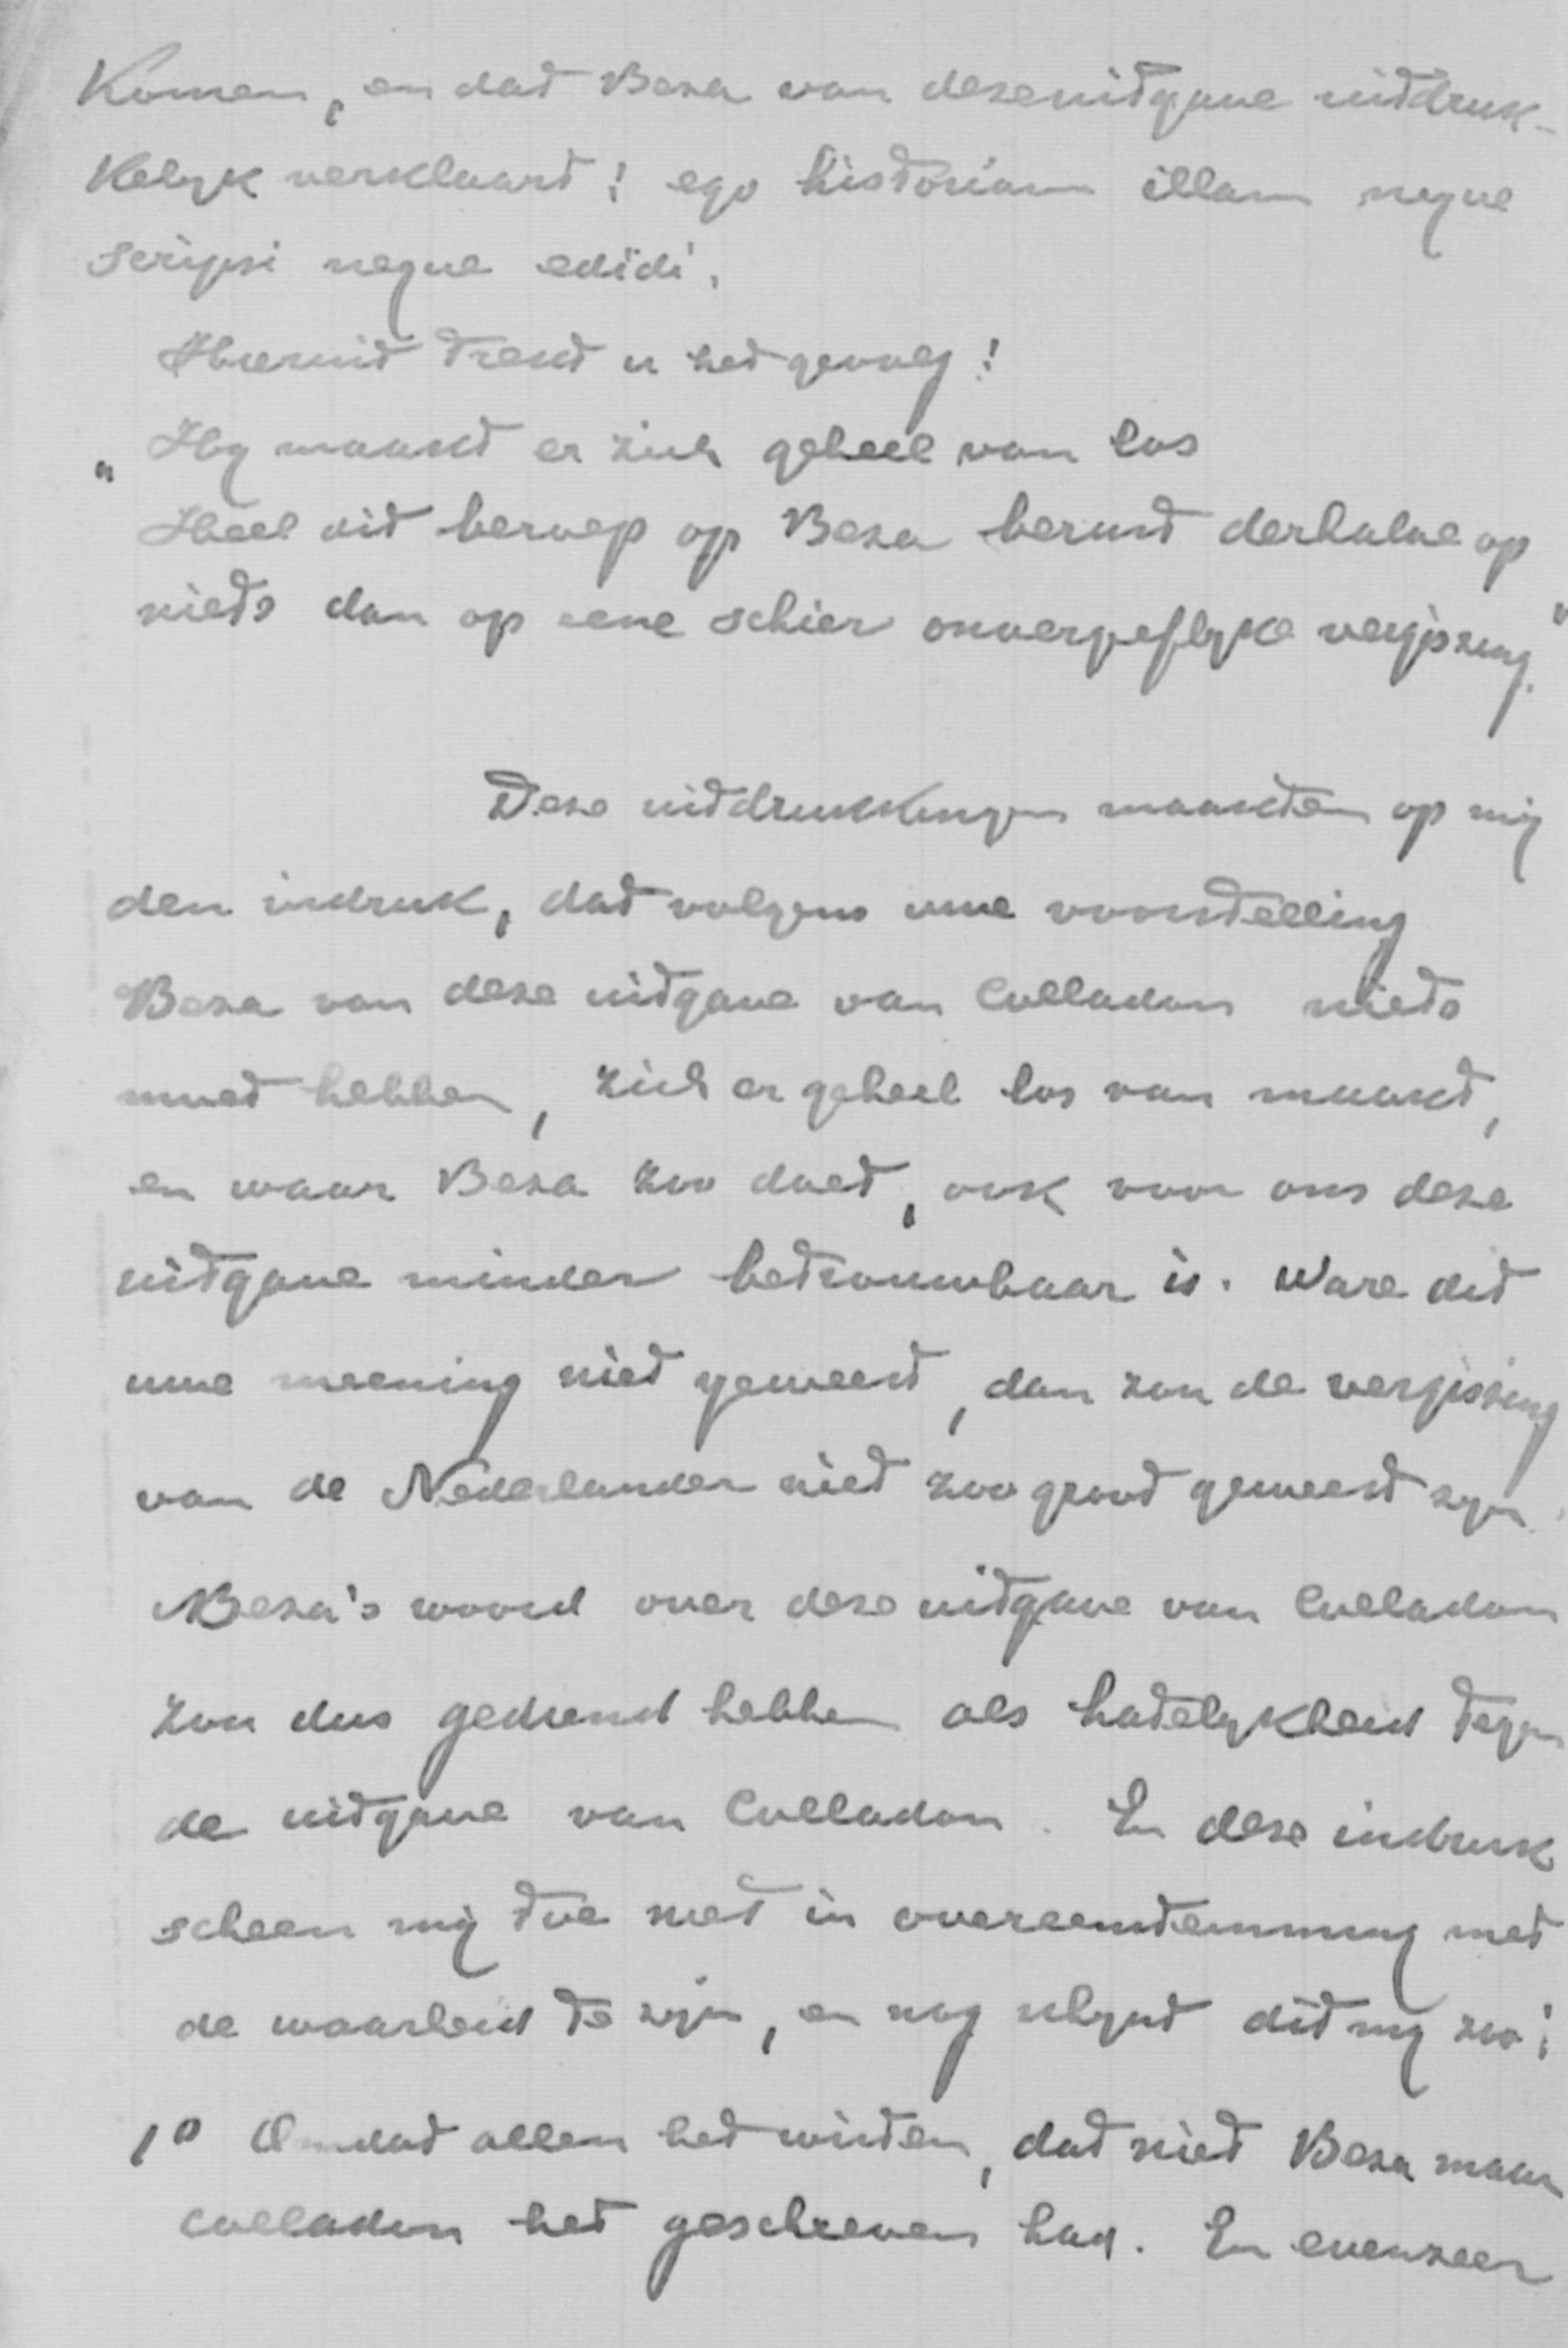 komen, en dat Beza van deze uitgave uitdruk-
kelyk verklaart: ego historiam illam neque
scripsi neque edidi.
Hieruit trekt u het gevolg:
„ Hy maakt er zich geheel van los
Heel dit beroep op Beza berust derhalve op
niets dan op eene schier onvergeeflyke vergissing."
Deze uitdrukkingen maakten op mij
den indruk, dat volgens uwe voorstelling
Beza van deze uitgave van Colladon niets
moet hebben, zich er geheel los van maakt,
en waar Beza zoo doet, ook voor ons deze
uitgave minder betrouwbaar is. Ware dit
uwe meening niet geweest, dan zou de vergissing
van de Nederlander niet zoo groot geweest zyn.
Beza's woord over deze uitgave van Colladon
zou dus gediend hebben als hatelykheid tegen
de uitgave van Colladon. En deze indruk
scheen mij toe niet in overeenstemming met
de waarheid te zyn, en nog schynt dit my zoo:
1º Omdat allen het wisten, dat niet Beza maar
Colladon het geschreven had. En evenzeer